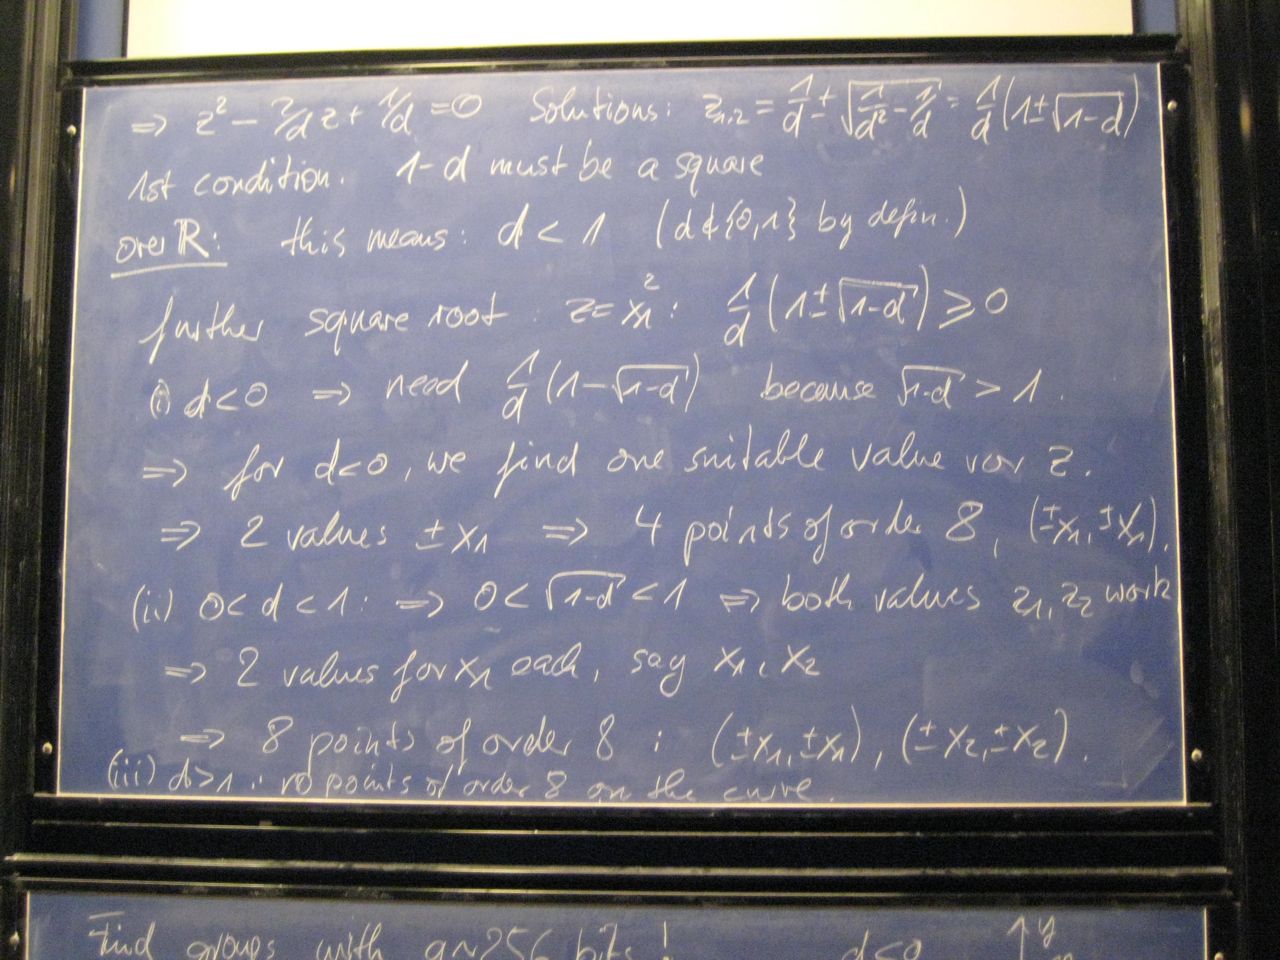 ⇒ z² − 2/d z + 1/d = 0 Solutions: z₁,₂ = 1/d ± √(1/d² − 1/d) = 1/d (1 ± √(1−d))
1st condition. 1−d must be a square
over ℝ: this means: d < 1 (d ∉ {0,1} by defin.)
further square root: z = x₁²: 1/d (1 ± √(1−d)) ⩾ 0
(i) d < 0 ⇒ need 1/d (1 − √(1−d)) because √(1−d) > 1.
⇒ for d<0, we find one suitable value vor z.
⇒ 2 values ±x₁ ⇒ 4 points of order 8, (±x₁, ±x₁).
(ii) 0 < d < 1: ⇒ 0 < √(1−d) < 1 ⇒ both values z₁, z₂ work
⇒ 2 values for x₁ each, say x₁, x₂
⇒ 8 points of order 8 : (±x₁, ±x₁), (±x₂, ±x₂).
(iii) d>1 : no points of order 8 on the curve.
Find groups with q~256 bits! d<0 y